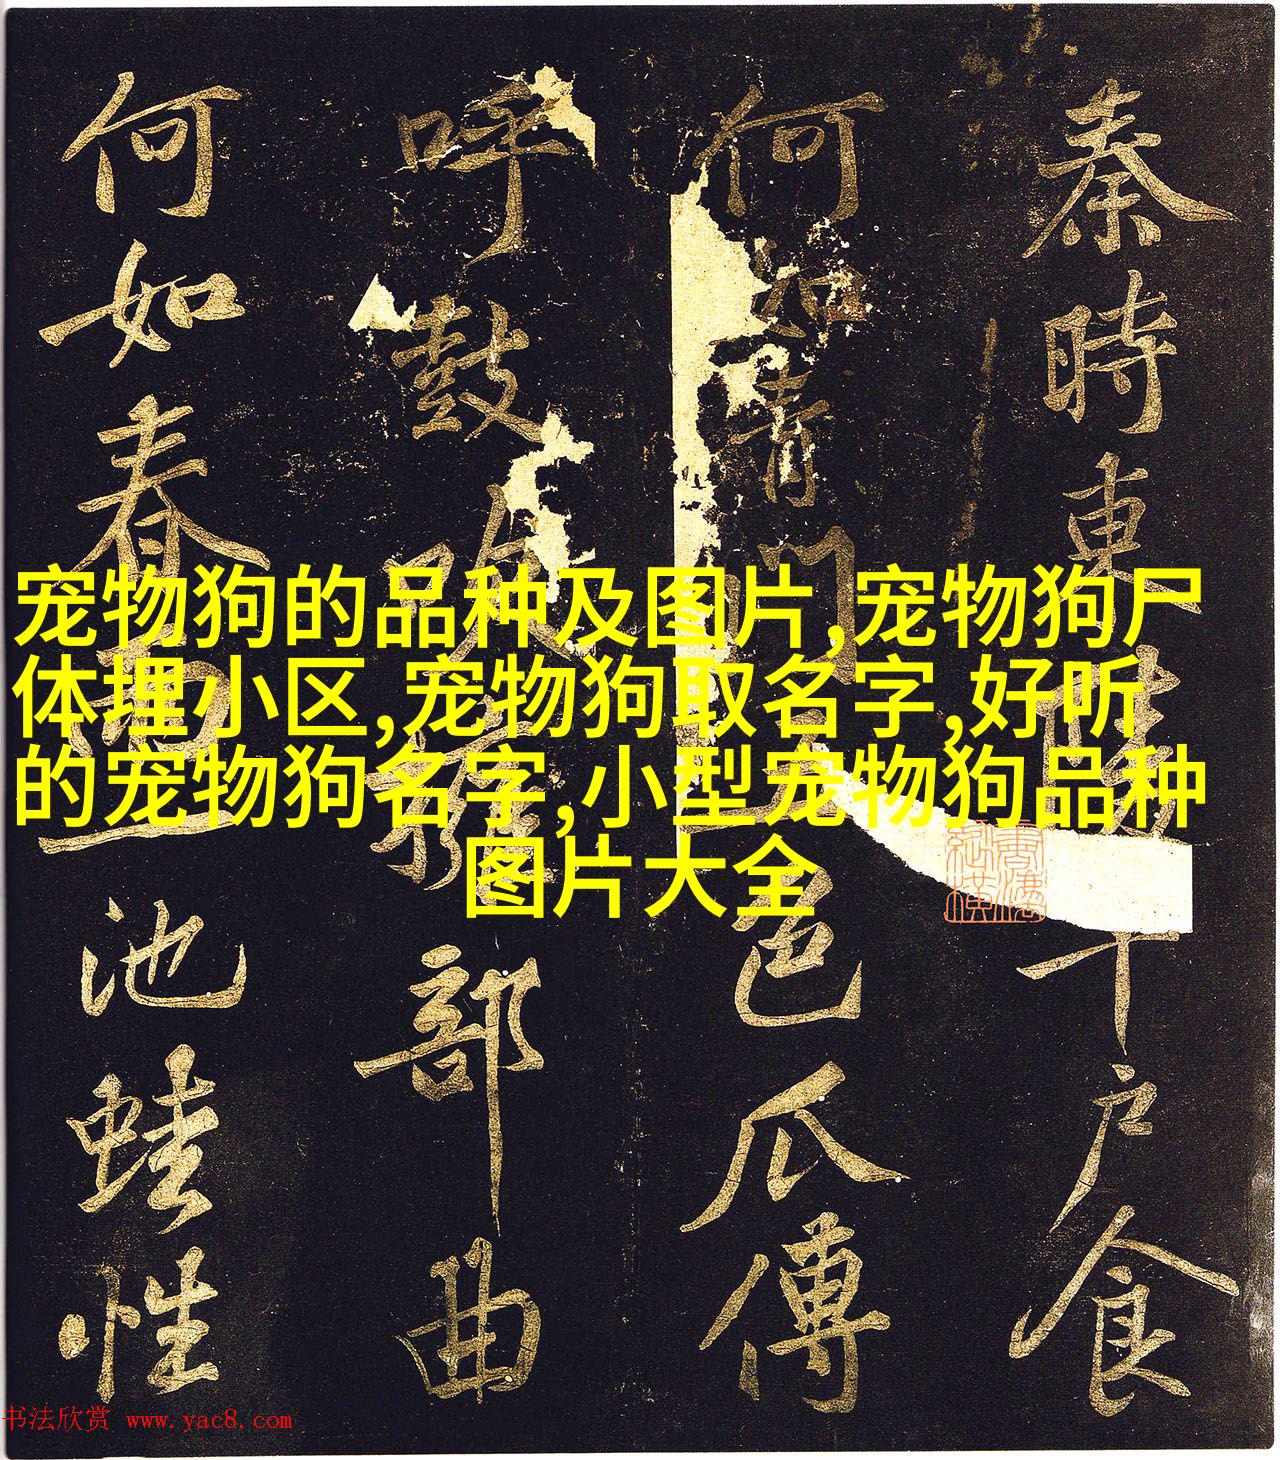 秦時東陵千戶食
何如青門五色瓜傅
呼鼓吹發部曲
何如春一池蛙性
宠物狗的品种及图片,宠物狗尸
体埋小区,宠物狗取名字,好听
的宠物狗名字,小型宠物狗品种
图片大全
书法欣赏 www.yac8.com